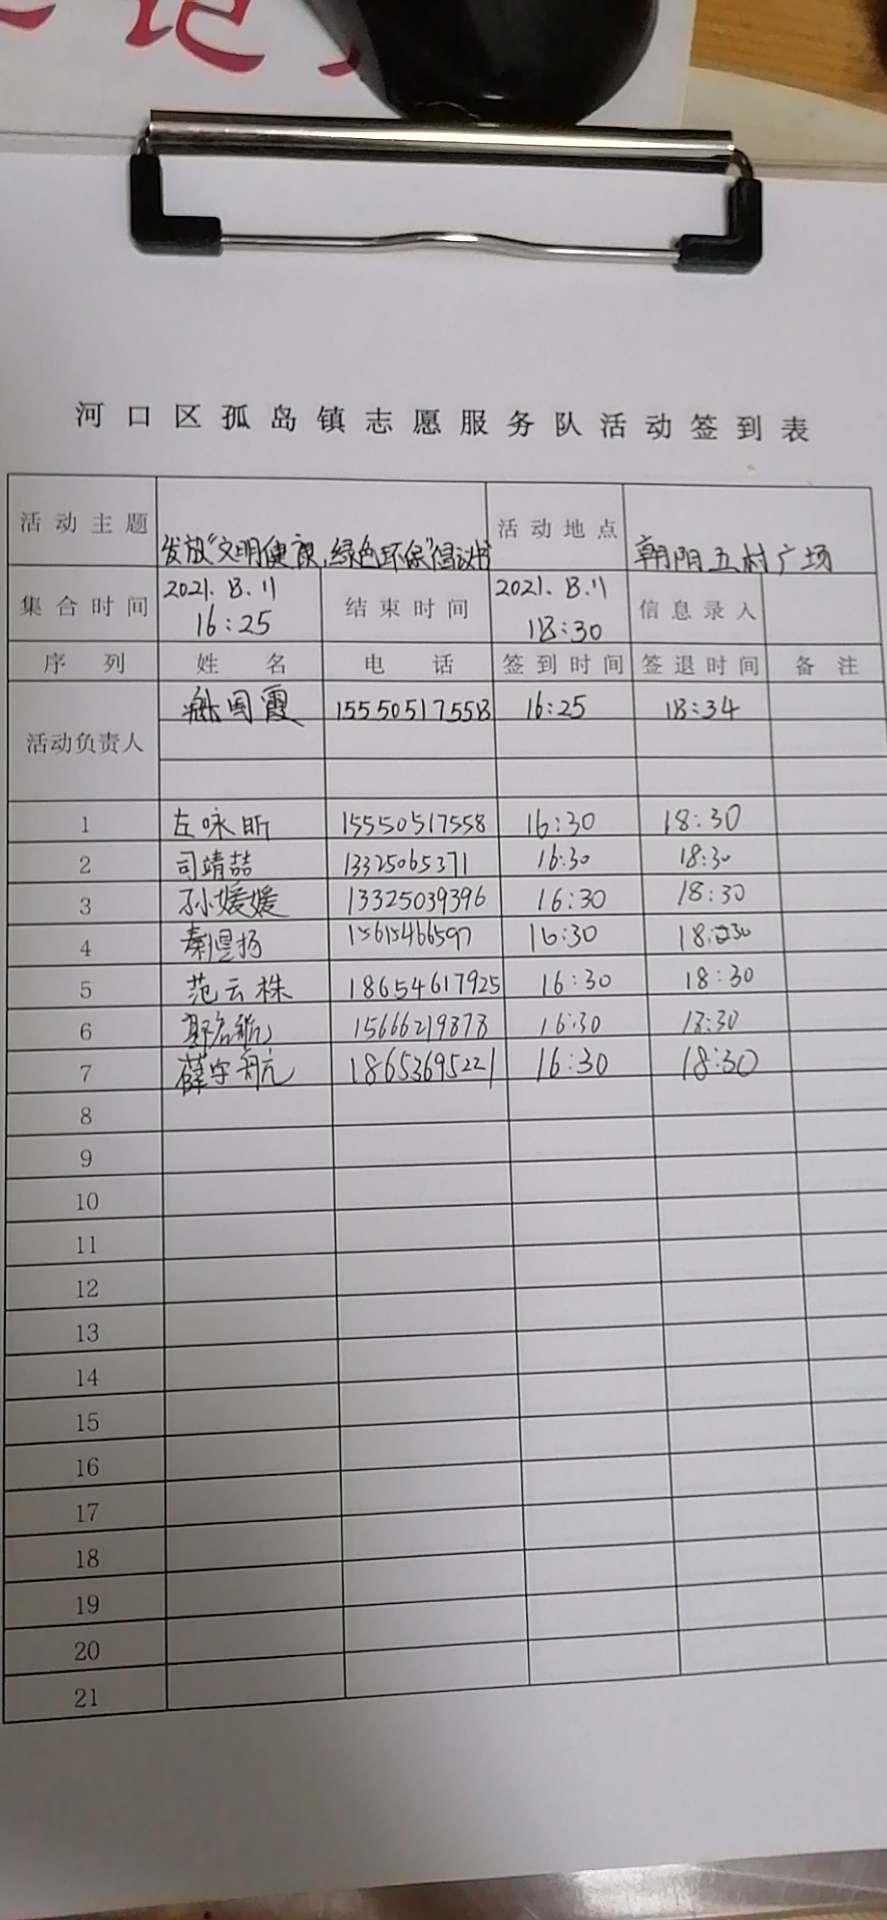 记
河口区孤岛镇志愿服务队活动签到表
活动主题 发放“文明健康,绿色环保”倡议书 活动地点 朝阳五村广场
集合时间 2021.8.11 16:25 结束时间 2021.8.11 18:30 信息录入
序列 姓名 电话 签到时间 签退时间 备注
活动负责人 国霞 15550517558 16:25 18:34
1 左咏昕 15550517558 16:30 18:30
2 司靖喆 13325065371 16:30 18:30
3 孙媛媛 13325039396 16:30 18:30
4 秦煜扬 15615466597 16:30 18:30
5 范云株 18654617925 16:30 18:30
6 15666219878 16:30 18:30
7 薛宇航 18653695221 16:30 18:30
8
9
10
11
12
13
14
15
16
17
18
19
20
21